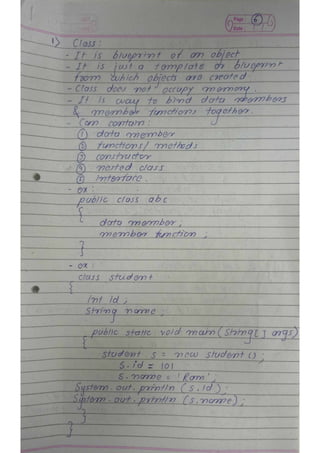 Page : 6
Date
1) Class :
- It is blueprint of an object
- It is just a template or blueprint
from which objects are created
- Class does not occupy memory.
- It is way to bind data members
& member functions together.
- Can contain :
① data member
② functions / methods
③ constructor
④ nested class
⑤ Interface.
- ex :
public class abc
{
data member ;
member function ;
}
}
- ex :
class student
{
int id ;
String name ;
public static void main (String[ ] args)
{
student s = new student () ;
s.id = 101
s.name = 'Ram' ;
System.out.println (s.id) ;
System.out.println (s.name) ;
}
}